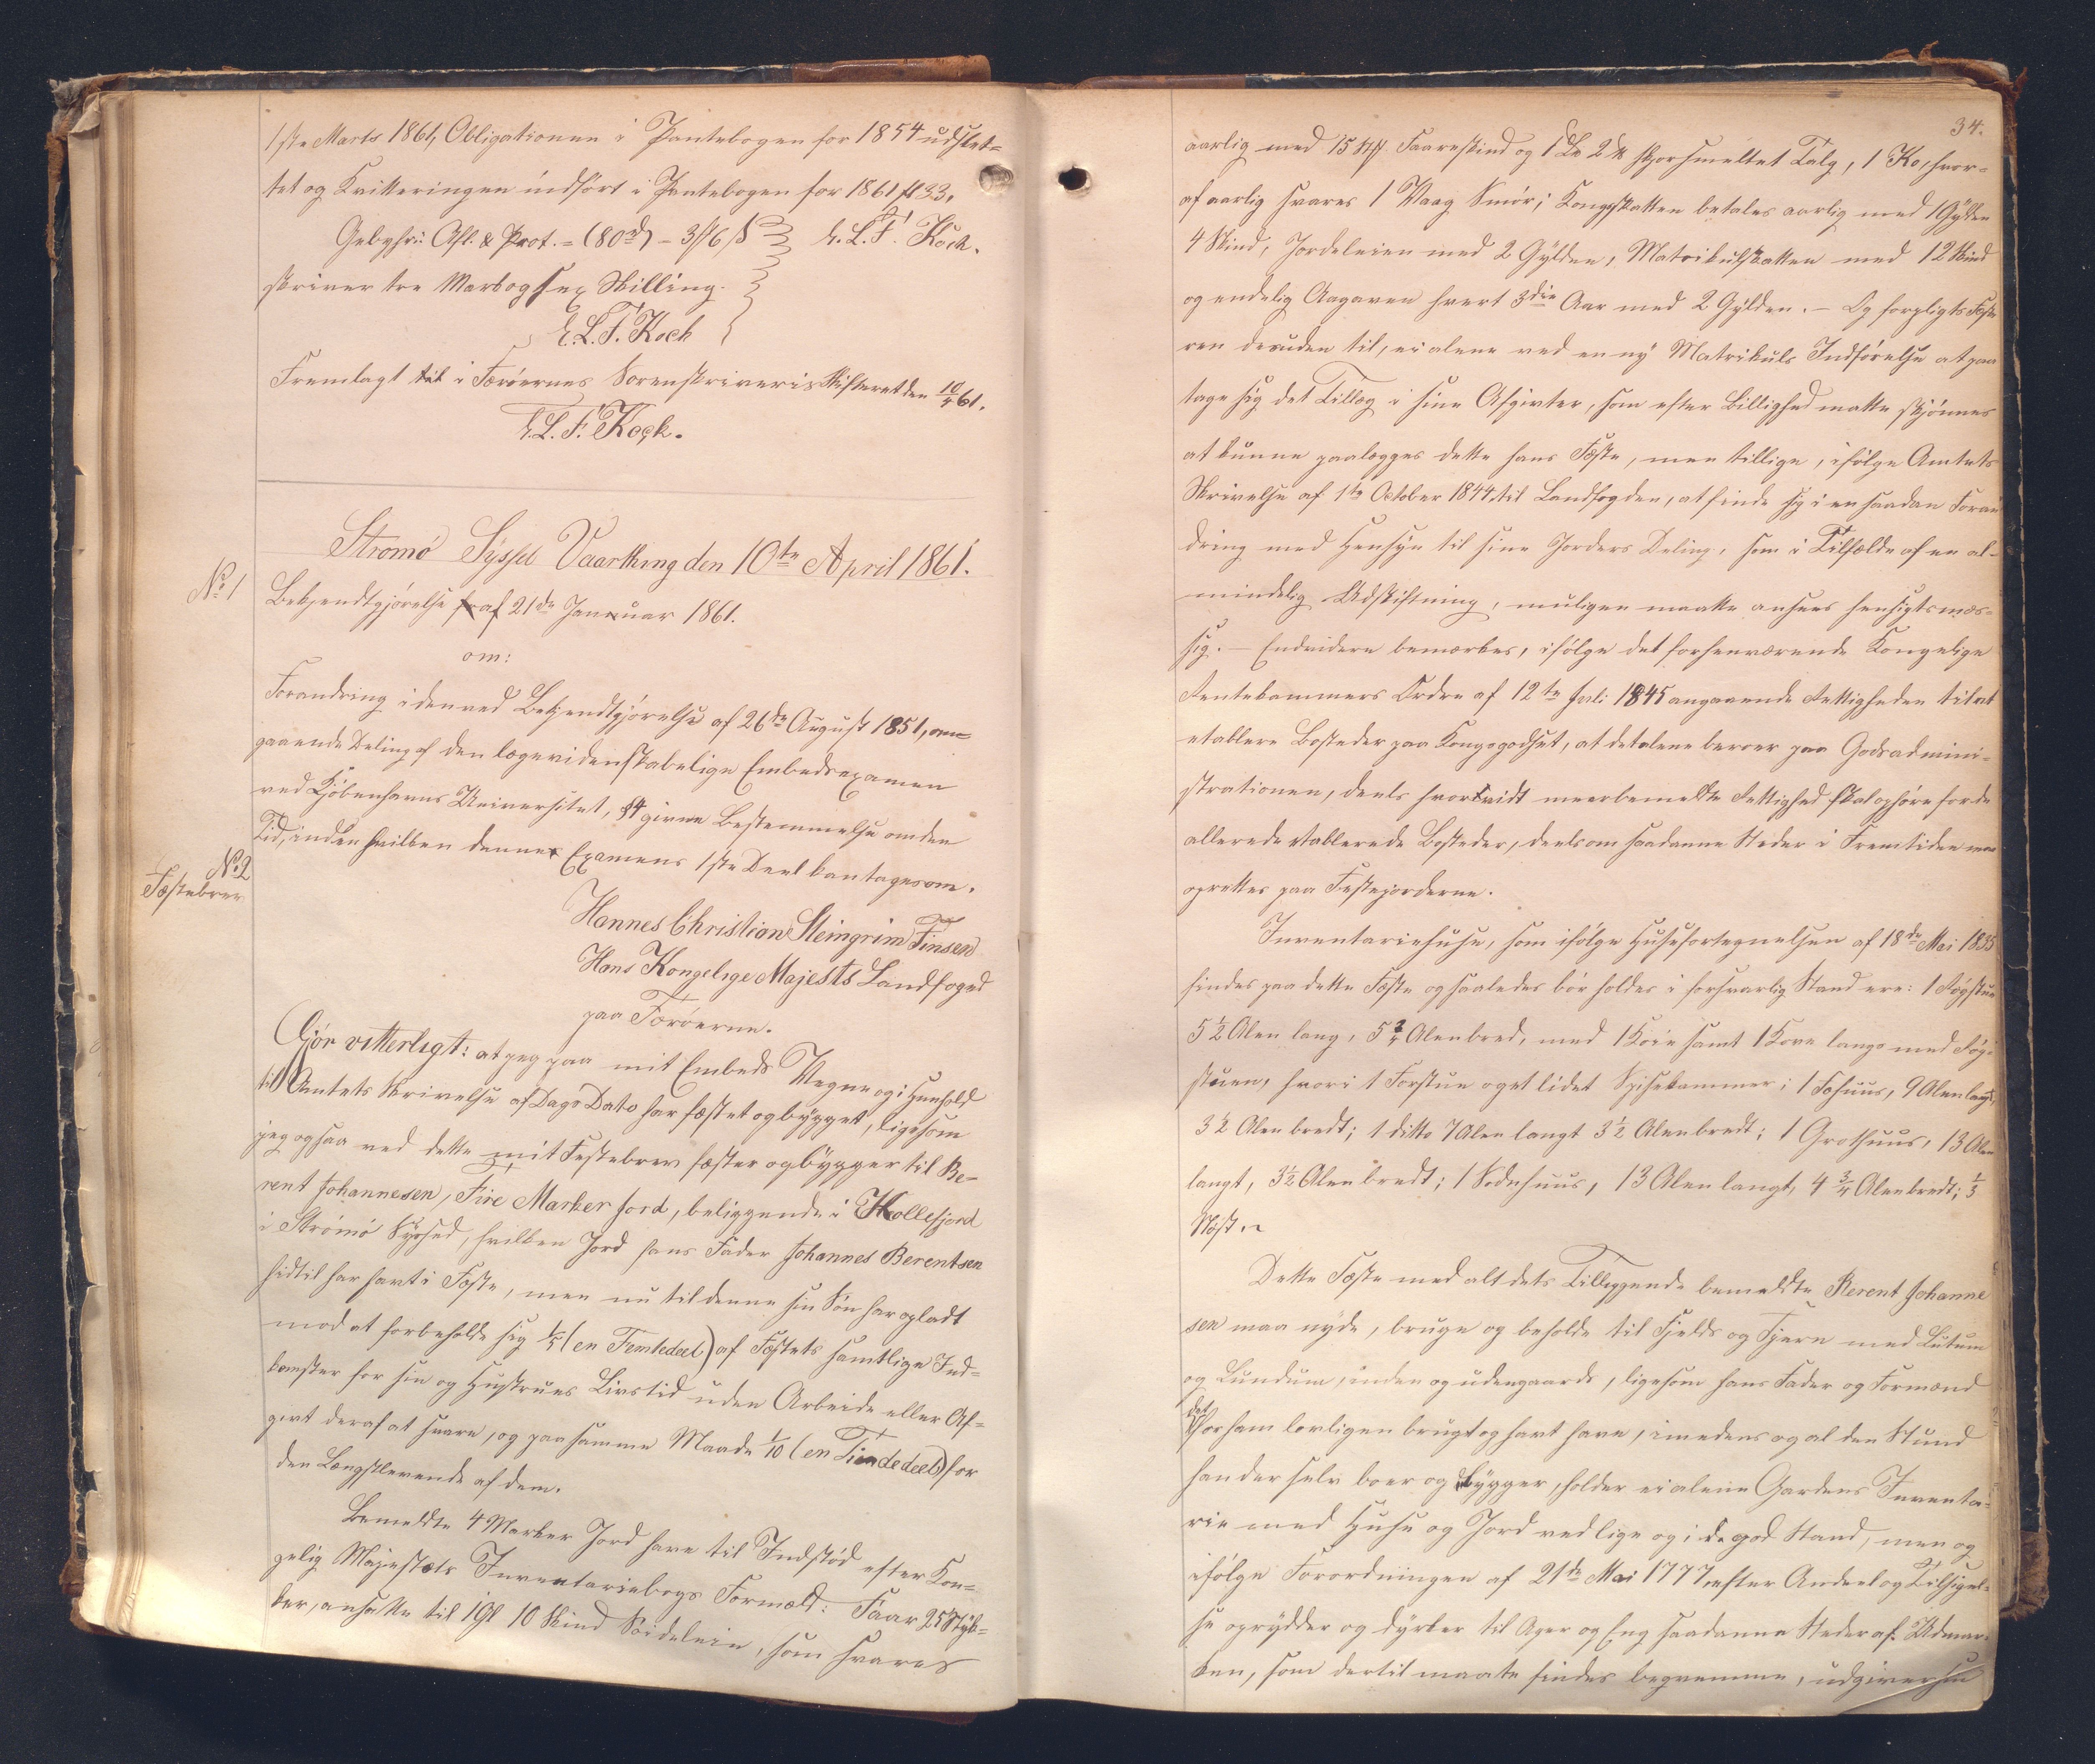 1ste Marts 1861, Obligationen i Pantebogen for 1854 udslet-
tet og Kvitteringen indført i Pantebogen for 1861 fl 33.
Gebyhr: Afl. & Prot. = (80d) - 3 ℳ 6 ß E. L. F. Koch.
skriver tre Mark og sex Skilling.
E. L. F. Koch
Fremlagt til i Færøernes Sorenskriveris Skifteret den 10/4 61.
E. L. F. Koch.
Strømø Syssel Vaarthing den 10de April 1861.
No 1
Bekjendtgjørelse fr af 21de Januar 1861.
om:
Forandring i den ved Bekjendtgjørelse af 26de August 1851, an-
gaaende Deling af den lægevidenskabelige Embedsexamen
ved Kjøbenhavns Universitet, §4 givne Bestemmelse om den
Tid, inden hvilken dennes Examens 1ste Deel kan tages om.
No 2
Fæstebrev
Hannes Christian Steingrim Finsen
Hans Kongelige Majesets Landfoged
paa Færøerne.
Gjør vitterligt: at jeg paa mit Embeds Vegne og i Henhold
til Amtets Skrivelse af Dags Dato har fæstet og bygget, ligesom
jeg ogsaa ved dette mit Festebrev fæster og bygger til Be-
rent Johannesen, Fire Marker Jord, beliggende i Kollefjord
i Strømø Syssel, hvilken Jord hans Fader Johannes Berentsen
hidtil har havt i Fæste, men nu til denne sin Søn har opladt
mod at forbeholde sig 1/5 (en Femtedeel) af Fæstets samtlige Ind-
komster for sin og Hustrues Livstid uden Arbeide eller Af-
givt deraf at svare, og paa samme Maade 1/10 (en Tiendedeel) for
den Længstlevende af dem.
Bemeldte 4 Marker Jord have til Indstød efter Kon-
gelig Majestæts Inventariebogs Formæld: Faar 25 Styk-
ker, ansatte til 1 Gl 10 Skind Søideleie, som svares
34.
aarlig med 15 Faareskind og 1 L℔ 2 ℔ skjørsmeltet Talg, 1 Ko, hvor-
af aarlig svares 1 Vaag Smør; Kongsskatten betales aarlig med 1 Gylden
4 Skind; Jordeleien med 2 Gylden, Matrikulskatten med 12 Skind
og endelig Aagaven hvert 3die Aar med 2 Gylden. - Og forpligtes Feste
ren desuden til, ei alene ved en ny Matrikuls Indførelse at paa
tage sig det Tillæg i sine Afgivter, som efter Billighed matte skjønnes
at kunne paalægges dette hans Fæste, men tillige, ifølge Amtets
Skrivelse af 1ste October 1844 til Landfogden, at finde sig i en saadan Foran
dring med Hensyn til sine Jorders Deling, som i Tilfælde af en al-
mindelig Udskiftning, muligen maatte ansees hensigtsmæs-
sig. - Endvidere bemærkes, ifølge det forhenværende Kongelige
Rentekammers Ordre af 12te Juli 1845 angaaende Rettigheden til at
etablere Bosteder paa Kongsgodset, at det alene beroer paa Godsadmini-
strationen, deels hvorvidt meerbemeldte Rettighed skal ophøre for de
allerede etablerede Bosteder, deels om saadanne Steder i Fremtiden maa
oprettes paa Festejorderne.
Inventariehuse, som ifølge Husefortegnelsen af 18de Mai 1835
findes paa dette Fæste og saaledes bør holdes i forsvarlig Stand ere: 1 Røgstue
5 1/2 Alen lang, 5 3/4 Alen bred, med 1 Køie samt 1 Kove langs med Røg-
stuen, hvori 1 Forstue og et lidet Spisekammer; 1 Fæhuus, 9 Alen langt,
3 1/2 Alen bredt; 1 ditto 7 Alen langt 3 1/2 Alen bredt; 1 Grothuus, 13 Alen
langt, 3 1/2 Alen bredt; 1 Sodnhuus, 13 Alen langt, 4 3/4 Alen bredt; 1/3
Nøst.
Dette Fæste med alt dets Tilliggende bemeldte Berent Johanne
sen maa nyde, bruge og beholde til Fjelds og Fjere med Lutum
og Lundum, inden og udengaards, ligesom hans Fader og Formænd
det
for ham lovligen brugt og havt have, imedens og al den Stund
han der selv boer og bygger, holder ei alene Gardens Inventa-
rie med Huse og Jord vedlige og i de god Stand, men og
ifølge Forordningen af 21de Mai 1777 efter Andeel og Tilsigel-
se oprydder og dyrker til Ager og Eng saadanne Steder af Udmar-
ken, som dertil maate findes beqvemme, udgiver sin